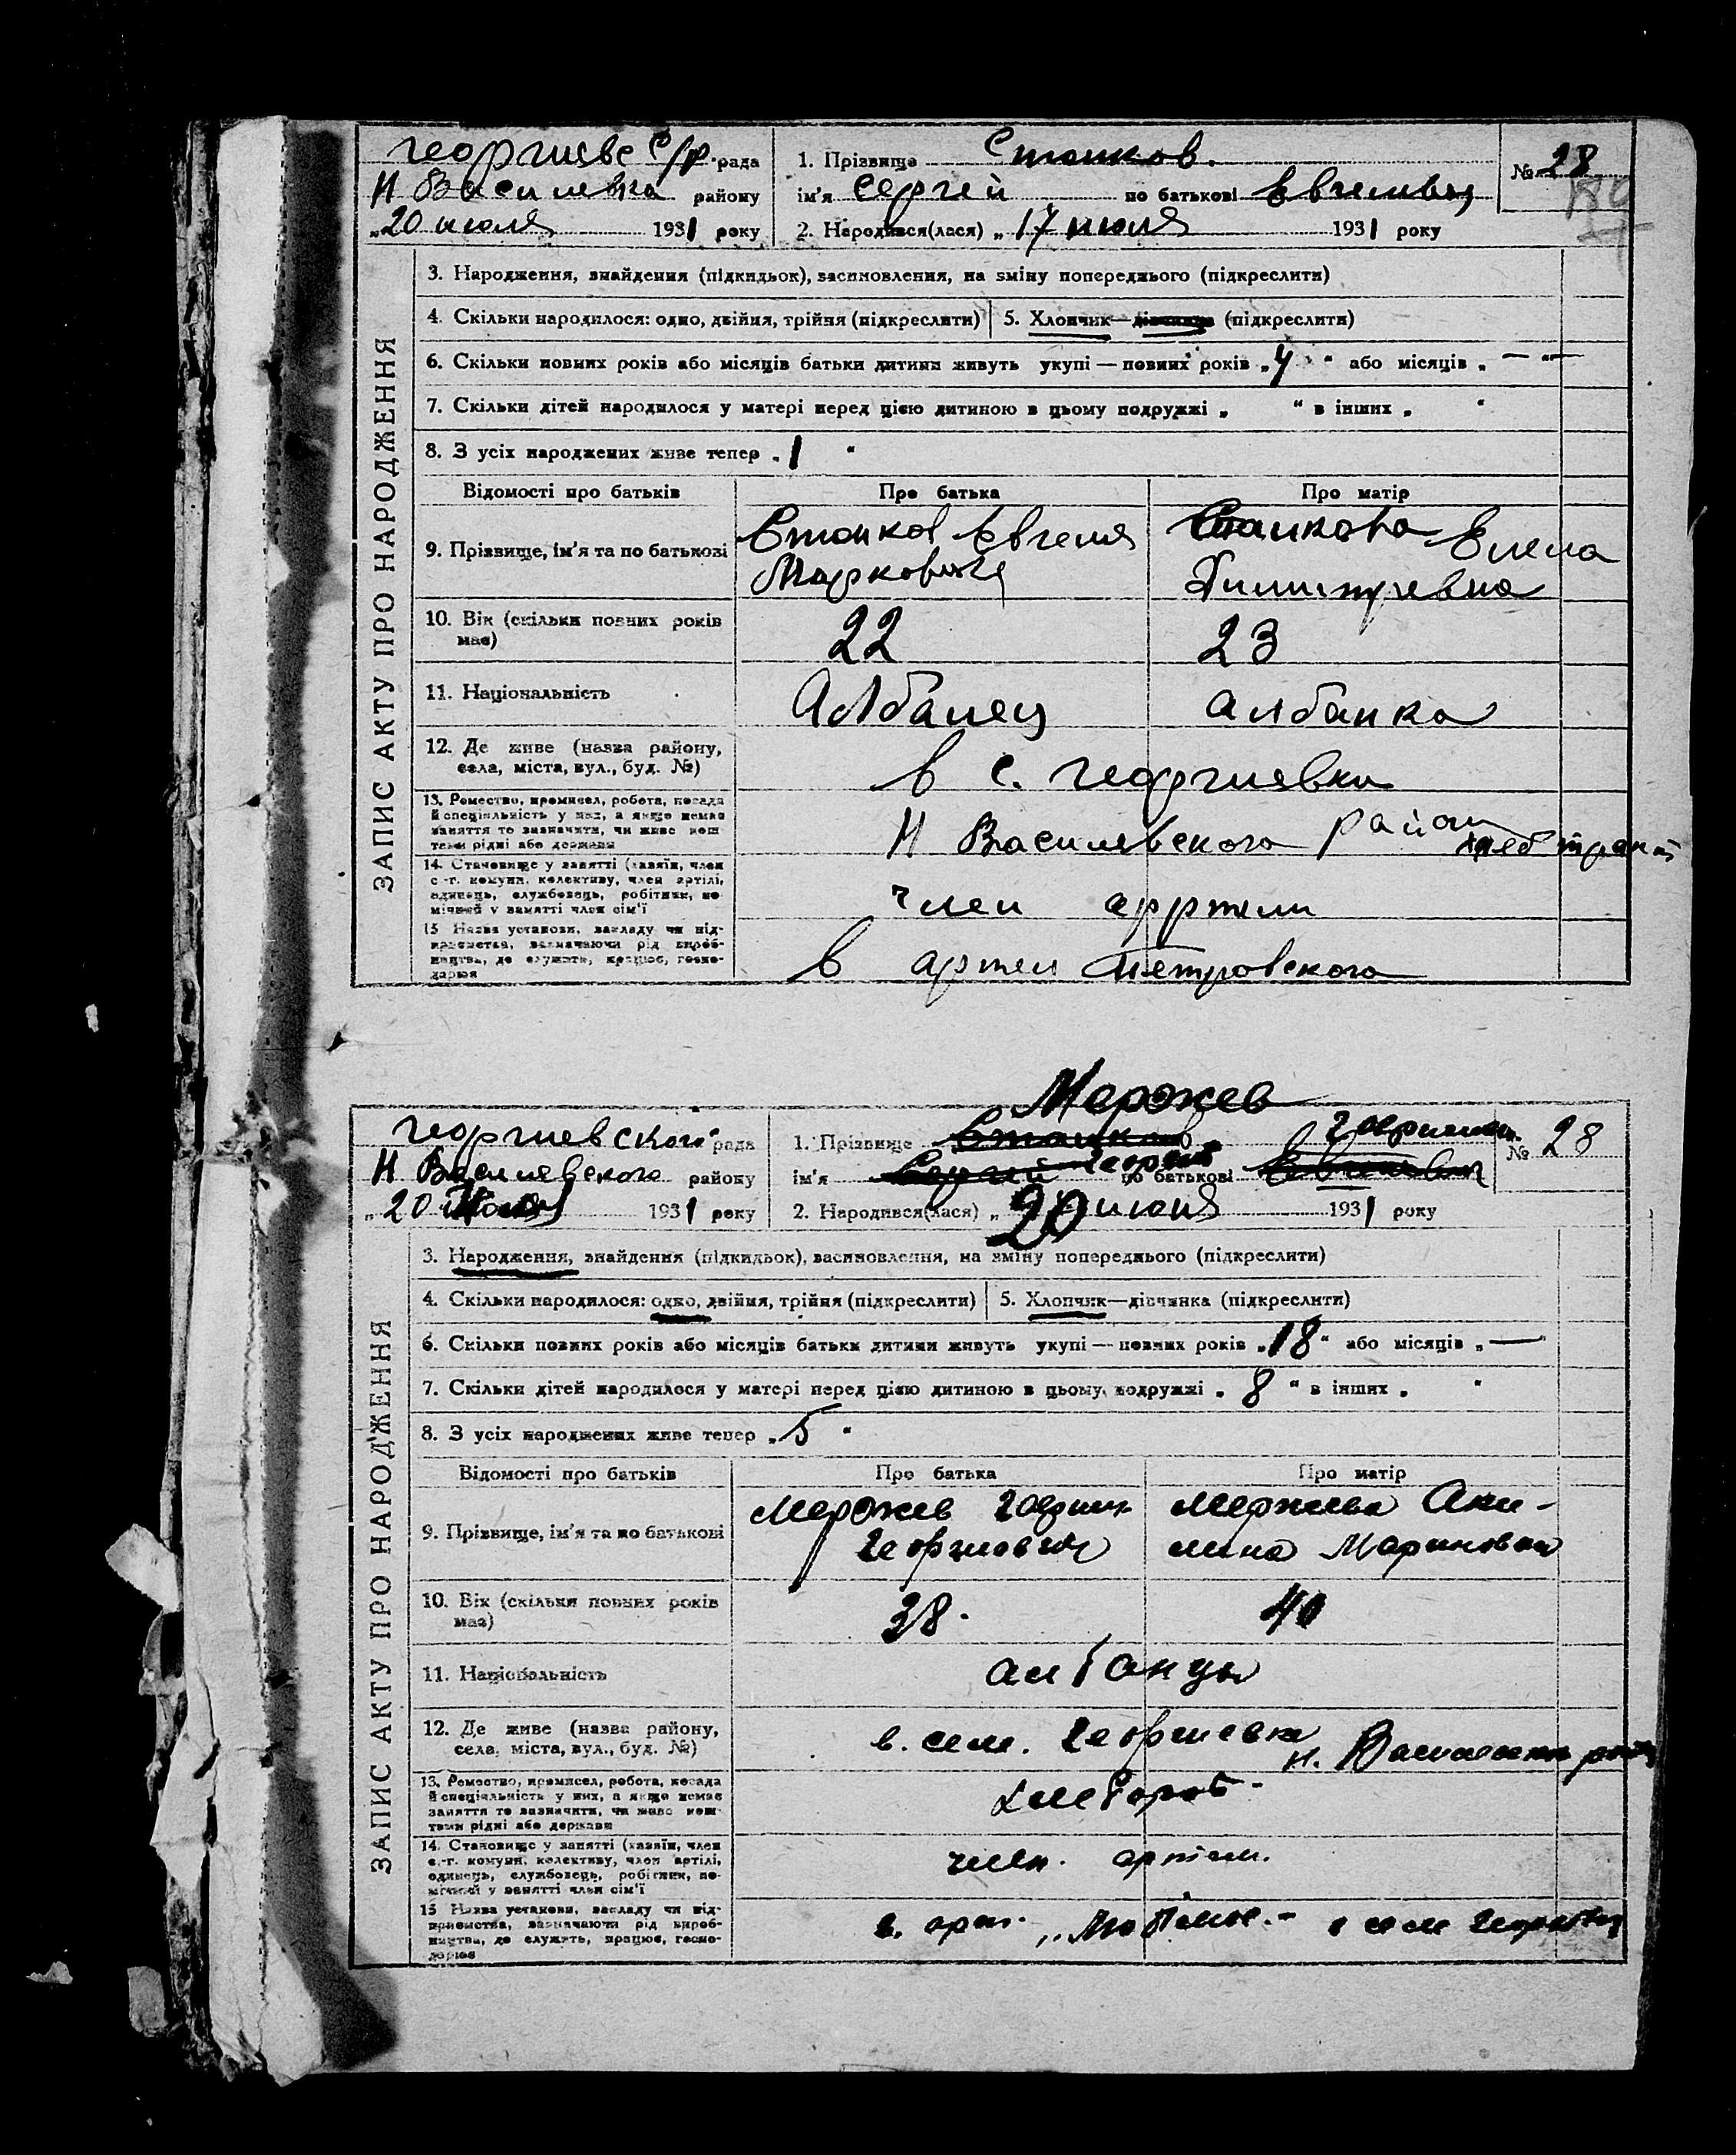 Георгиевс с/р. рада
Н Василевка району
„20 июля 1931 року
1. Прізвище Стоиков.
ім'я Сергей по батькові Евгеневич
2. Народився(лася) „17 июля 1931 року
№ 28
ЗАПИС АКТУ ПРО НАРОДЖЕННЯ
3. Народження, знайдення (підкидьок), засиновлення, на зміну попереднього (підкреслити)
4. Скільки народилося: одно, двійня, трійня (підкреслити) 5. Хлопчик—дівчинка (підкреслити)
6. Скільки повних років або місяців батьки дитини живуть укупі — повних років „4“ або місяців „—“
7. Скільки дітей народилося у матері перед цією дитиною в цьому подружжі „ “ в інших „ “
8. З усіх народжених живе тепер „1“
Відомості про батьків Про батька Про матір
9. Прізвище, ім'я та по батькові Стоиков Евгения Стоикова Елена
Маркович Димитревна
10. Вік (скільки повних років 22 23
має)
11. Національність Албанец албанка
12. Де живе (назва району, в с. Георгиевки
села, міста, вул., буд. №)
13. Ремество, промисел, робота, посада Н Василевского район
й спеціяльність у них, а якщо немає
заняття то зазначити, чи живе кош-
тами рідні або держави
14. Становище у занятті (хазяїн, член член арртели
с.-г. комуни, колективу, член артілі,
одинець, службовець, робітник, по-
мічний у занятті член сім'ї
15 Назва установи, закладу чи під- в артел Петровского
приємства, зазначаючи рід вироб-
ництва, де служить, працює, госпо-
дарює
Мержев
Георгиевского рада
Н Василевского району
„20 1931 року
1. Прізвище Стоиков
ім'я Сергей Георгий по батькові Евгеневич
2. Народився(лася) „20 июня 1931 року
№ 28
ЗАПИС АКТУ ПРО НАРОДЖЕННЯ
3. Народження, знайдення (підкидьок), засиновлення, на зміну попереднього (підкреслити)
4. Скільки народилося: одно, двійня, трійня (підкреслити) 5. Хлопчик—дівчинка (підкреслити)
6. Скільки повних років або місяців батьки дитини живуть укупі — повних років „18“ або місяців „—
7. Скільки дітей народилося у матері перед цією дитиною в цьому подружжі „8“ в інших „ “
8. З усіх народжених живе тепер „5“
Відомості про батьків Про батька Про матір
9. Прізвище, ім'я та по батькові Мержев Мержева Аки-
Георгиевич лина Мариновна
10. Вік (скільки повних років 38. 40
має)
11. Національність албанцы
12. Де живе (назва району, в. сел. Георгиевка
села, міста, вул., буд. №) Н. Василевски район
13. Ремество, промисел, робота, посада хлебороб-
й спеціяльність у них, а якщо немає
заняття то зазначити, чи живе кош-
тами рідні або держави
14. Становище у занятті (хазяїн, член член. артели.
с.-г. комуни, колективу, член артілі,
одинець, службовець, робітник, по-
мічний у занятті член сім'ї
15 Назва установи, закладу чи під- в. арт.
приємства, зазначаючи рід вироб-
ництва, де служить, працює, госпо-
дарює